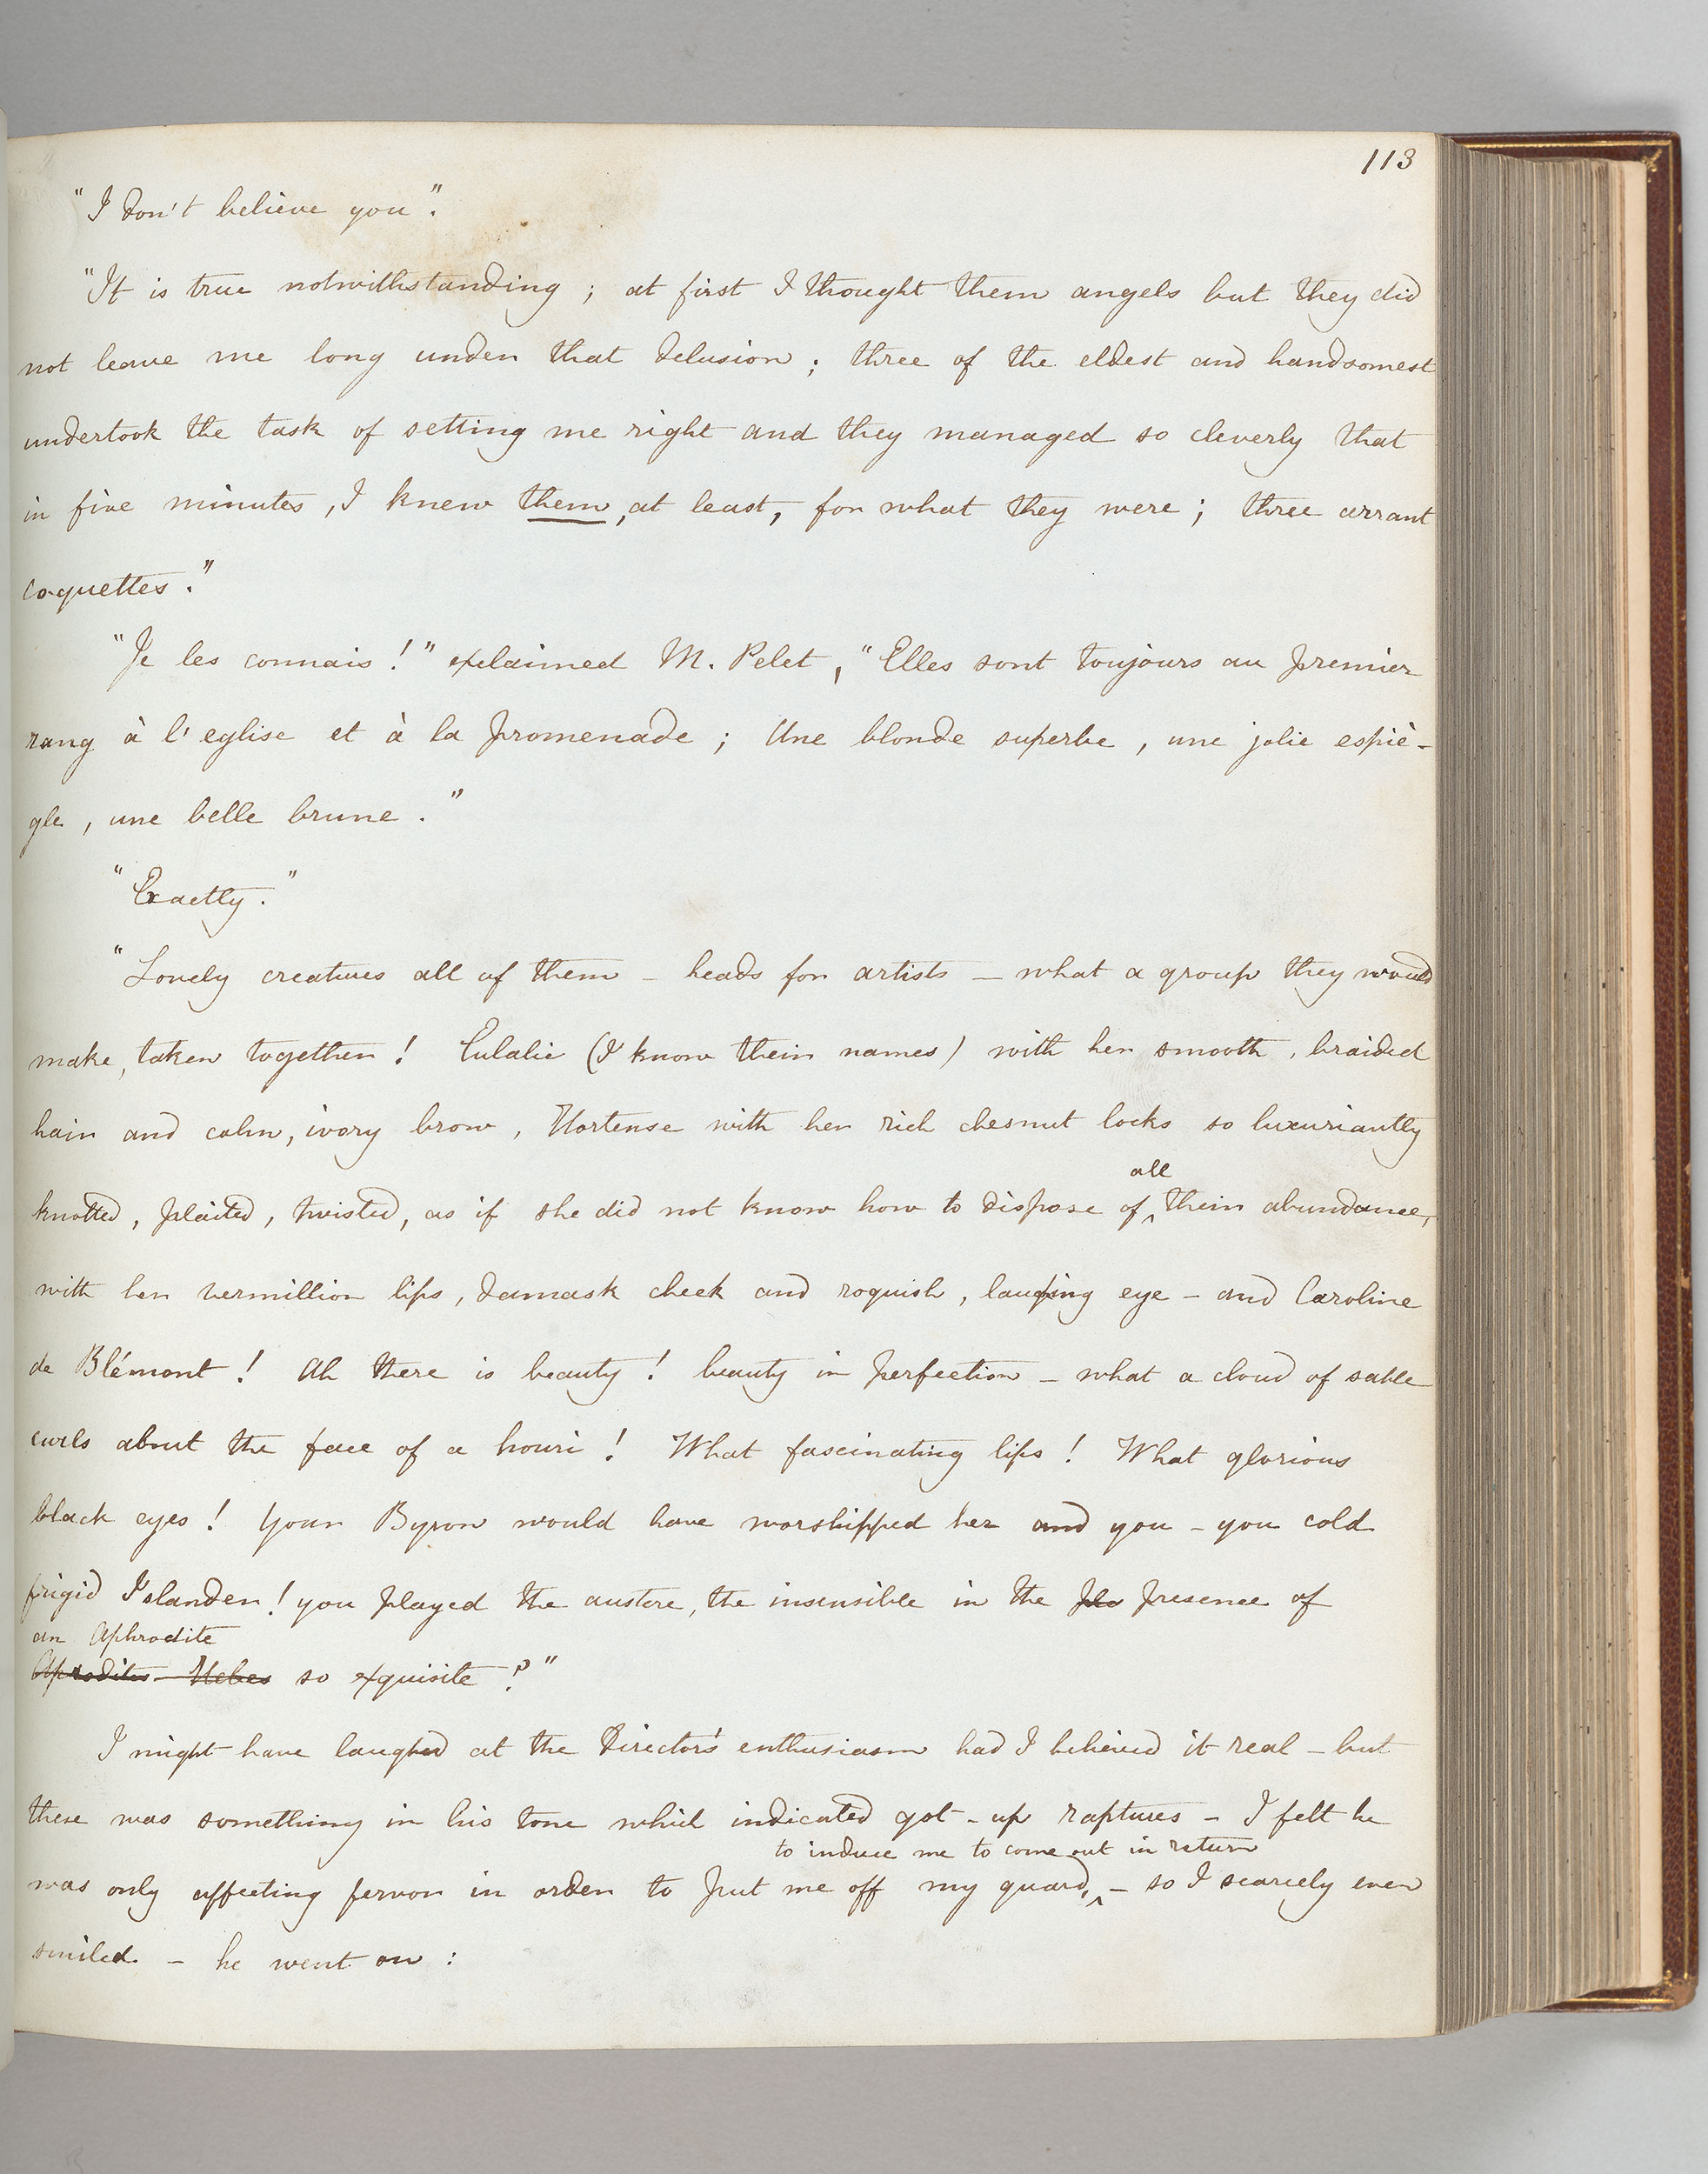 113
"I don't believe you".
"It is true notwithstanding ; at first I thought them angels but they did
not leave me long under that delusion ; three of the eldest and handsomest
undertook the task of setting me right and they managed so cleverly that
in five minutes , I knew them, at least, for what they were ; three arrant
coquettes."
"Je les connais ! " exclaimed M. Pelet , "Elles sont toujours au premier
rang à l'eglise et à la promenade ; Une blonde superbe , une jolie espiè-
gle , une belle brune . "
"Exactly."
"Lovely creatures all of them – heads for artists – what a group they would
make, taken together ! Eulalie (I know their names) with her smooth , braided
hair and calm, ivory brow , Hortense with her rich chesnut locks so luxuriantly
all
knotted , plaited , twisted, as if she did not know how to dispose of ‸ their abundance,
with her vermillion lips , damask cheek and roguish , laughing eye – and Caroline
de Blémont ! Ah there is beauty ! beauty in perfection – what a cloud of sable
curls about the face of a houri ! What fascinating lips ! What glorious
black eyes ! Your Byron would have worshipped her and you – you cold
frigid Islander ! you played the austere, the insensible in the presence of
an Aphrodite
Aphrodite Hebes so exquisite ? "
I might have laughed at the Director's enthusiasm had I believed it real – but
there was something in his tone which indicated got – up raptures – I felt he
to induce me to come out in return
was only affecting fervor in order to put me off my guard, ‸ – so I scarcely even
smiled – he went on :